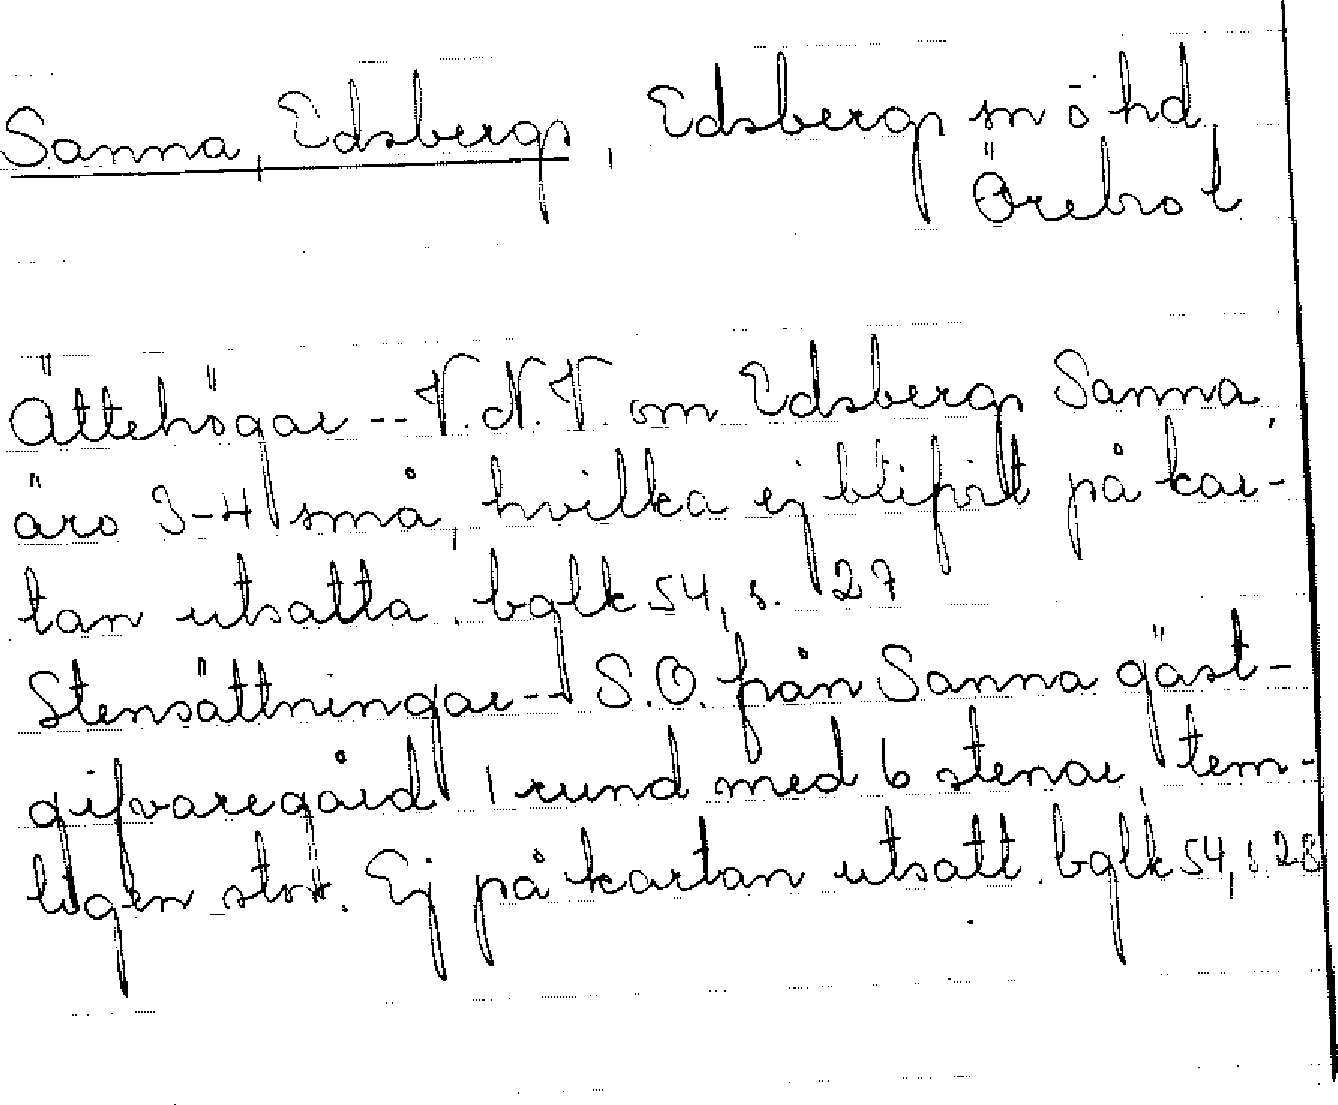 Sanna, Edsbergs, Edsbergs sn ö hd,
Örebro l.
Ättehögar -- V.N.V. om Edsbergs Sanna,
äro 3-4 små, hvilka ej blifvit på kar-
tan utsatta. bglk 54, s. 27
Stensättningar -- S.O. från Sanna gäst-
gifvaregård 1 rund med 6 stenar, tem-
ligen stor. Ej på kartan utsatt. bglk 54, s. 28